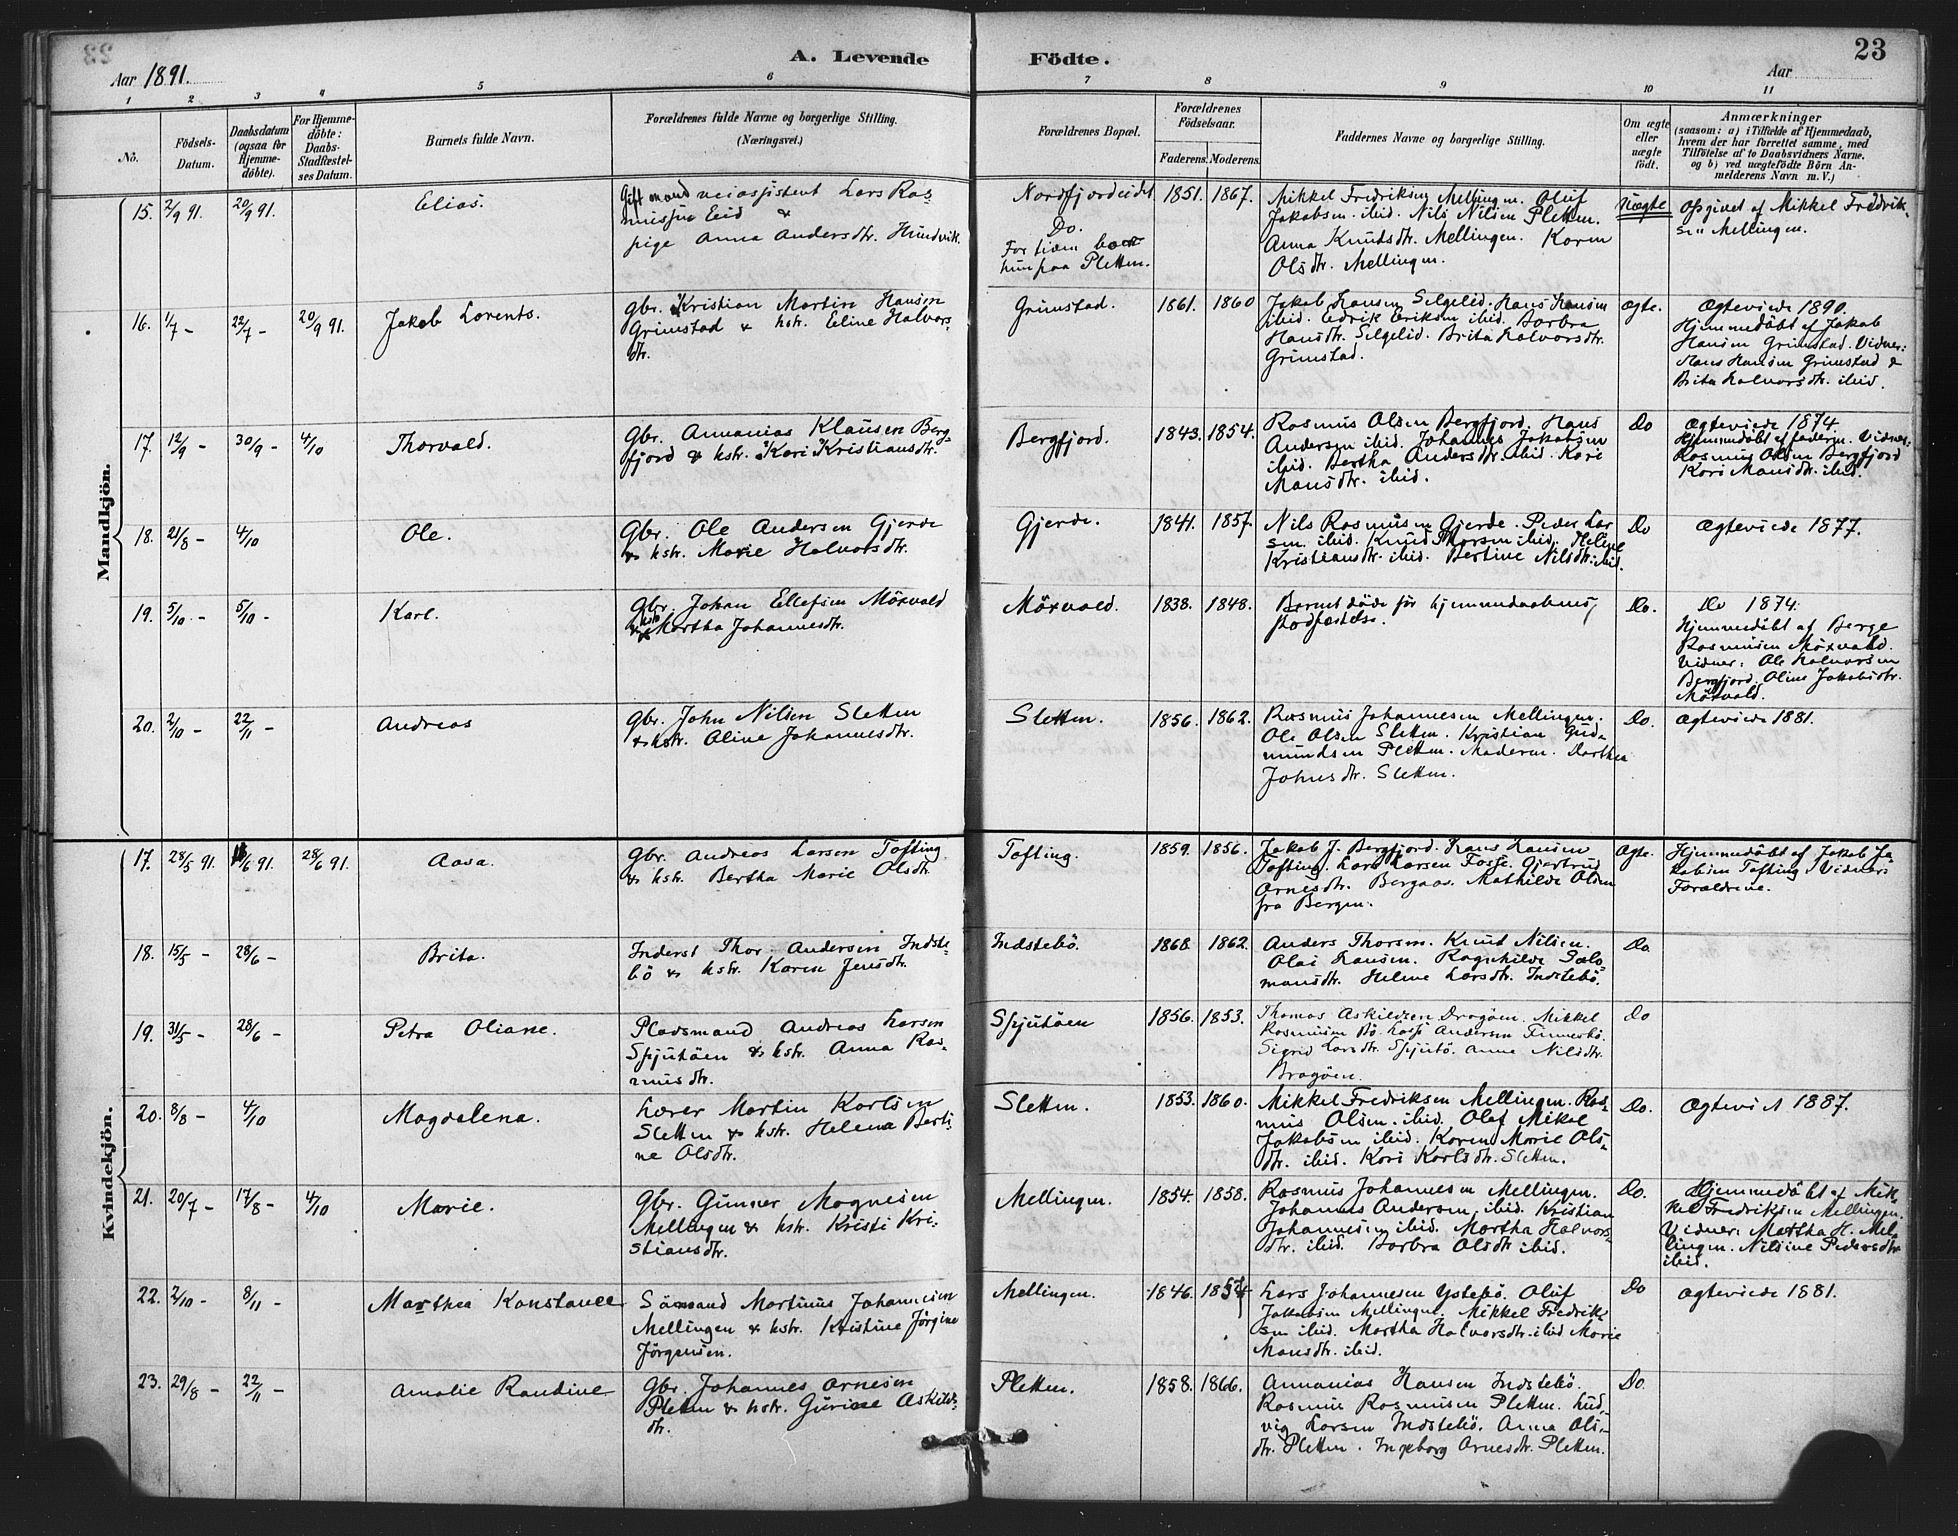 Aar 1891.
A. Levende Födte.
23
Aar
1 2 3 4 5 6 7 8 9 10 11
No.
Födsels-Datum.
Daabsdatum (ogsaa for Hjemme-döbte).
For Hjemme-döbte: Daabs-Stadfæstel-ses Datum.
Barnets fulde Navn.
Forældrenes fulde Navne og borgerlige Stilling.
(Næringsvei.)
Forældrenes Bopæl.
Forældrenes Födselsaar.
Faderens. Moderens.
Faddernes Navne og borgerlige Stilling.
Om ægte eller uægte födt.
Anmærkninger
(saasom: a) i Tilfælde af Hjemmedaab,
hvem der har forrettet samme, med
Tilföielse af to Daabsvidners Navne,
og b) ved uægtefödte Börn An-
melderens Navn m. V.)
Mandkjön.
15. 2/9 91. 20/9 91. Elias.
Gift mand veiassistent Lars Ras-
mussen Eid &
pige Anna Andersdtr. Hundvik.
Nordfjordeidet
Do.
For tiden
hun paa Pletten.
1851. 1867.
Mikkel Fredriksen Mellingen. Oluf
Jakobsen ibid. Nils Nilsen Pletten.
Anna Knudsdtr. Mellingen. Karen
Olsdtr. Mellingen.
Uægte
Opgivet af Mikkel Fredrik-
sen Mellingen.
16. 1/7 - 22/7 - 20/9 91. Jakob Lorents.
Gbr. Kristian Martin Hansen
Grimstad & hstr. Eline Halvors-
dtr.
Grimstad. 1861. 1860
Jakob Hansen Selgelid. Hans Hansen
ibid. Edrik Eriksen ibid. Barbra
Hansdtr. Selgelid. Brita Halvorsdtr.
Grimstad.
ægte.
Ægteviede 1890.
Hjemmedöbt af Jakob
Hansen Grimstad. Vidner:
Hans Hansen Grimstad &
Brita Halvorsdtr. ibid.
17. 12/9 - 30/9 - 4/10 Thorvald.
Gbr. Annanias Klausen Berg-
fjord & hstr. Kari Kristiansdtr.
Bergfjord. 1843. 1854.
Rasmus Olsen Bergfjord. Hans
Andersen ibid. Johannes Jakobsen
ibid. Bertha Andersdtr. ibid. Kari
Mansdtr. ibid.
Do
Ægteviede 1874.
Hjemmedöbt af faderen. Vidner:
Rasmus Olsen Bergfjord
Kari Mansdtr. ibid.
18. 21/8 - 4/10 Ole.
Gbr. Ole Andersen Gjerde
& hstr. Marie Halvorsdtr.
Gjerde. 1841. 1857.
Nils Rasmusen Gjerde. Peder Lar-
sen ibid. Knud Thorsen ibid. Heline
Kristiansdtr. ibid. Bertine Nilsdtr. ibid.
Do
Ægteviede 1877.
19. 5/10 - 5/10 - Karl.
Gbr. Johan Ellefsen Mörvald
& hstr. Martha Johannesdtr.
Mörvald. 1838. 1848.
Barnet döde för hjemmedaabens
stadfæstelse.
Do.
Do 1874.
Hjemmedöbt af Berge
Rasmusen Mörvald.
Vidner: Ole Halvorsen
Bergfjord. Oline Jakobsdtr.
Mörvald.
20. 2/10 - 22/11 - Andreas
Gbr. John Nilsen Sletten
& hstr. Oline Johannesdtr.
Sletten. 1856. 1862.
Rasmus Johannesen Mellingen.
Ole Olsen Sletten. Kristian Gud-
mundsen Pletten. Moderen. Dorthea
Johnsdtr. Sletten.
Do.
Ægteviede 1881.
Kvindekjön.
17. 28/5 91. /6 91. 28/6 91. Aasa.
Gbr. Andreas Larsen Tofting
& hstr. Bertha Marie Olsdtr.
Tofting. 1859. 1856.
Jakob J. Bergfjord. Hans Hansen
Tofting. Lars Larsen Fosse. Gjertrud
Arnesdtr. Bergaas. Mathilde Olsen
fra Bergen.
Ægte.
Hjemmedöbt af Jakob Ja-
kobsen Tofting. Vidner:
Forældrene.
18. 15/5 - 28/6 - Brita.
Inderst Thor Andersen Indste-
bö & hstr. Karen Jensdtr.
Indstebö. 1868. 1862.
Anders Thorsen. Knud Nilsen.
Olai Hansen. Ragnhilde Salo-
monsdtr. Heline Larsdtr. Indstebö.
Do.
19. 31/5 - 28/6 - Petra Oliane.
Pladsmand Andreas Larsen
Spjutöen & hstr. Anna Ras-
musdtr.
Spjutöen 1856. 1853.
Thomas Askildsen Dragöen. Mikkel
Rasmusen Bö. Lasse Andersen Tinnerbö.
Sigrid Larsdtr. Spjutö. Anna Nilsdtr.
Bragöen.
Do
20. 8/8 - 4/10 Magdalena.
Lærer Martin Karlsen
Sletten & hstr. Helena Berti-
ne Olsdtr.
Sletten. 1853. 1860.
Mikkel Fredriksen Mellingen. Ras-
mus Olsen. ibid. Olaf Mikal
Jakobsen ibid. Karen Marie Ols-
dtr. ibid. Kari Karlsdtr. Sletten.
Do.
Ægteviet 1887.
21. 20/7 - 17/8 - 4/10 Marie.
Gbr. Gunner Mognesen
Mellingen & hstr. Kristi Kri-
stiansdtr.
Mellingen. 1854. 1858.
Rasmus Johannesen Mellingen.
Johannes Andersen ibid. Kristian
Johannesen ibid. Martha Halvors-
dtr. ibid. Barbra Olsdtr ibid.
Do.
Hjemmedöbt af Mik-
kel Fredriksen Mellingen.
Vidner: Martha H. Mel-
lingen. Nilsine Pedersdtr
ibid.
22. 2/10 - 8/11 - Marthea Konstance
Sömand Martinus Johannesen
Mellingen & hstr. Kristine Jörgine
Jörgensen.
Mellingen. 1846. 1857
Lars Johannesen Ystebö. Oluf
Jakobsen Mellingen. Mikkel Fredrik-
sen ibid. Martha Halvorsdtr. ibid Marie
Mansdtr. ibid.
Do
Ægteviede 1881.
23. 29/8 - 22/11 - Amalie Randine
Gbr. Johannes Arnesen
Pletten & hstr. Gurine Askilds-
dtr.
Pletten. 1858. 1866.
Annanias Hansen Indstebö.
Rasmus Rasmusen Pletten. Lud-
vig Larsen Indstebö. Anna Ols-
dtr. Pletten. Ingeborg Arnesdtr. Pletten.
Do.